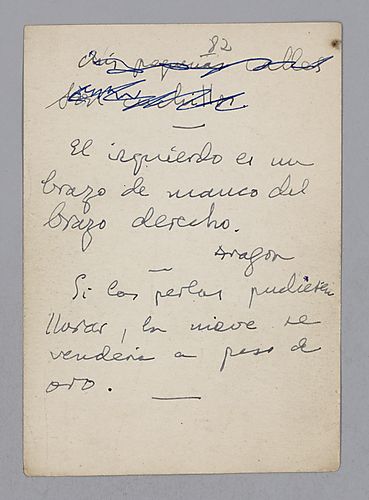 82
pequeñas calles
son
El izquierdo es un
brazo de manco del
brazo derecho.
Aragon
Si las perlas pudiesen
llorar, la nieve se
vendería a peso de
oro.